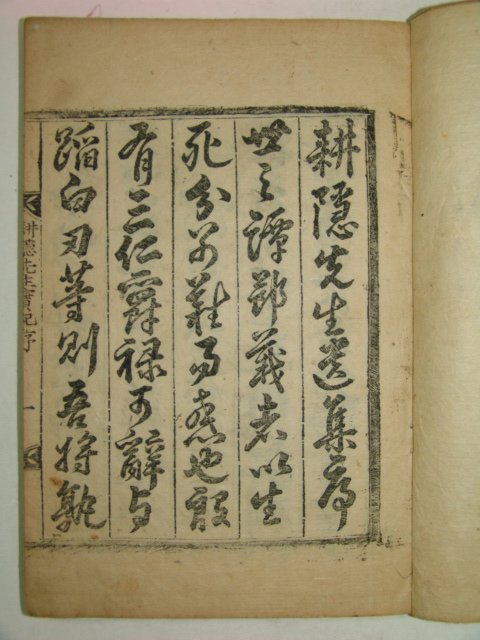 耕隱先生遺集序
世之譚節義者以生
死分別難易意也殷
有三仁爵祿可辭與
蹈白刃等則吾將孰
耕隱先生實記序
一